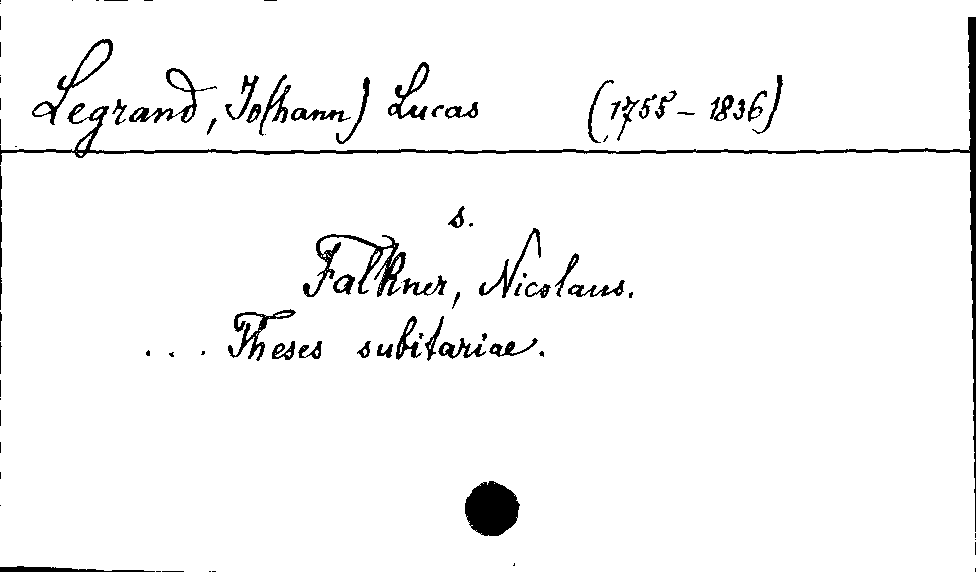 Legrand, Jo(hann) Lucas (1755-1836)
s.
Falkner, Nicolaus.
... Theses subitariae.